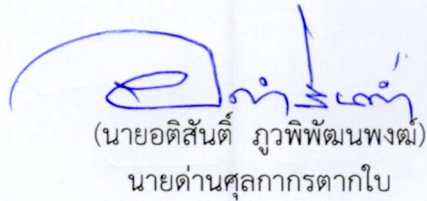 (นายอติสันติ์ ภูวพิพัฒนพงฒ์)
นายด่านศุลกากรตากใบ